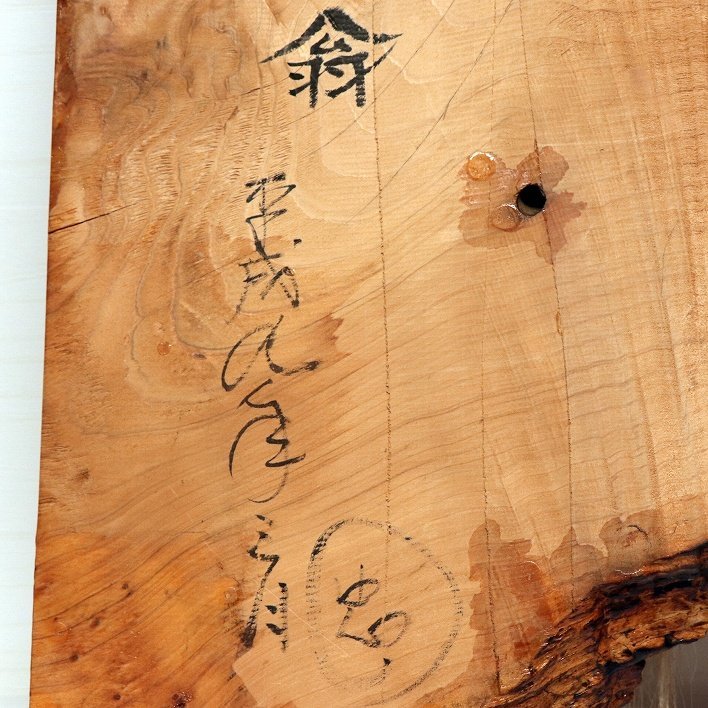 翁
平成九年三月
忠